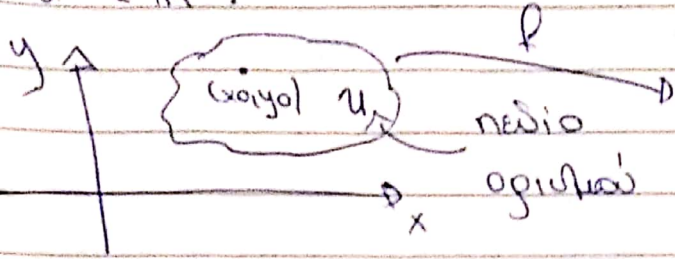 f
y
(x₀,y₀) U
πεδίο
ορισμού
x